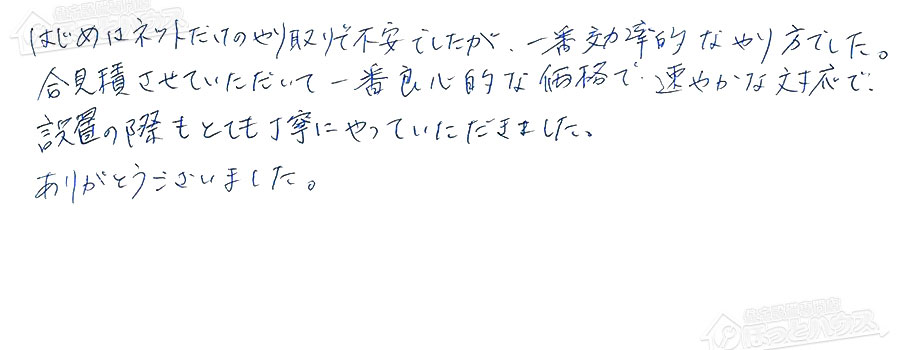 はじめはネットだけのやり取りで不安でしたが、一番効率的なやり方でした。
合見積させていただいて一番良心的な価格で速やかな対応で、
設置の際もとても丁寧にやっていただきました。
ありがとうございました。
ほっとハウス